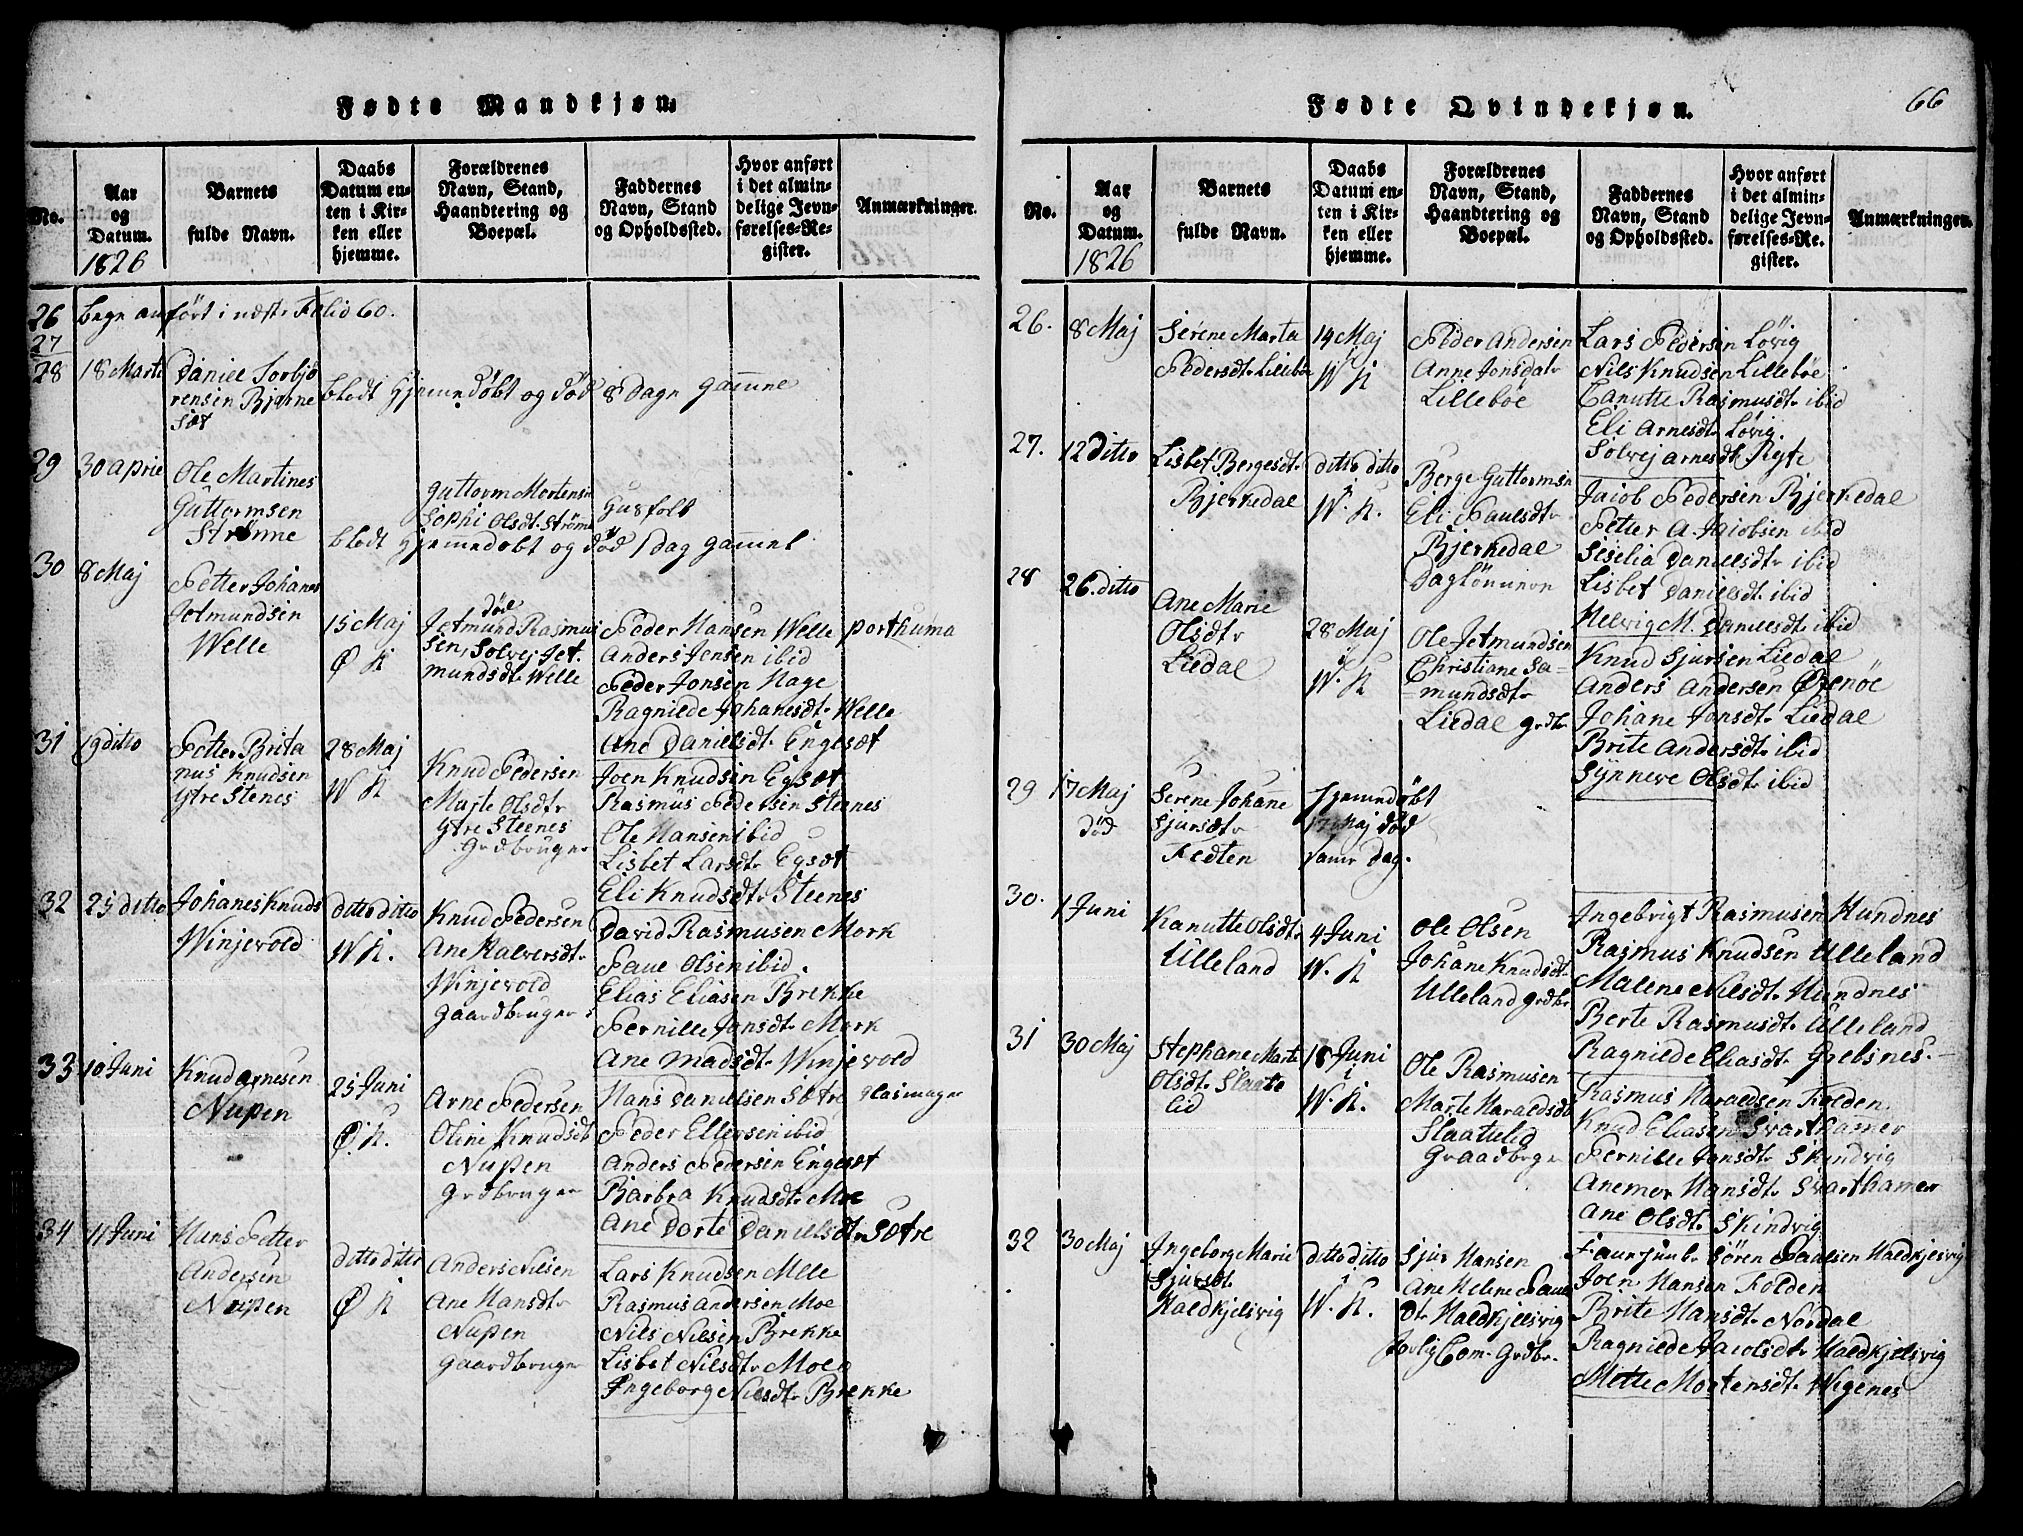 Fødte Mandkjøn.
No.
Aar
og
Datum.
1826
Barnets
fulde Navn.
Daabs
Datum en-
ten i Kir-
ken eller
hjemme.
Forældrenes
Navn, Stand,
Haandtering og
Boepæl.
Faddernes
Navn, Stand
og Opholdssted.
Hvor anført
i det almin-
delige Jevn-
førelses-Re-
gister.
Anmærkninger.
26
27
anført i næste Folio 60.
28
18 Marts
Daniel Torbjø
rensen Bjørne
Sæt
blodt Hjemmedøbt og død 8 Dage gamme
29
30 april
Ole Martines
Guttormsen
Strømme
Guttorm Mortensen
Sophi Olsdtr Strømme
Husfolk
blodt Hjemmedøbt og død 1 Dag gammel
30
8 Maj
Petter Johanes
Jetmundsen
Welle
15 Maj
Ø K
død
Jetmund Rasmus
sen, Solvej Jet-
mundsdtr Welle
Peder Hansen Welle
Anders Jensen ibid
Peder Jonsen Hage
Ragnilde Johanesdtr Welle
Ane Danielsdtr Engesæt
porthuma
31
19 ditto
Petter Brita
nus Knudsen
Ytre Stenes
28 Maj
W K
Knud Pedersen
Marte Olsdtr
Ytre Steenes
Grdbruger
Joen Knudsen Egsæt
Rasmus Pedersen Steenes
Ole Hansen ibid
Lisbet Larsdtr Egsæt
Eli Knudsdtr Steenes
32
25 ditto
Johanes Knuds
Winjevold
ditto ditto
W K.
Knud Pedersen
Ane Halversdtr
Winjevold
Gaardbruger
David Rasmusen Mork
Paul Olsen ibid.
Elias Eliasen Brekke
Pernille Jonsdtr Mork
Ane Madsdtr Winjevold
33
10 Juni
Knud Arnesen
Nupen
25 Juni
Ø. K.
Arne Pedersen
Oline Knudsdt
Nupen
Grdbruger
Hans Danielsen Sætre Glasmager
Peder Ellersen ibid
Anders Pedersen Engesæt
Barbra Knudsdtr Moe
Ane Dorte Danielsdtr Sætre
34
11 Juni
Hans Petter
Andersen
Nupen
ditto ditto
Ø K
Anders Nilsen
Ane Hansdtr
Nupen
Gaardbruger
Lars Knudsen Melle
Rasmus Andersen Moe
Nils Nilsen Brekke
Lisbet Nilsdtr Moe
Ingeborg Nilsdtr Brekke
Fødte Qvindekjøn.
66
No.
Aar
og
Datum.
1826
Barnets
fulde Navn.
Daabs
Datum en-
ten i Kir-
ken eller
hjemme.
Forældrenes
Navn, Stand,
Haandtering og
Boepæl.
Faddernes
Navn, Stand
og Opholdssted.
Hvor anført
i det almin-
delige Jevn-
førelses-Re-
gister.
Anmærkninger.
26.
8 Maj
Serene Marta
Pedersdtr Lillebøe
14 Maj
W K
Peder Andersen
Anne Jonsdatr
Lillebøe
Lars Pedersen Løvig
Nils Knudsen Lillebøe
Canutte Rasmusdtr ibid
Eli Arnesdtr Løvig.
Solvej Arnesdtr Ryte
27.
12 Ditto
Lisbet Bergesdtr
Bjerkedal
ditto ditto
W. K.
Berge Guttormsen
Eli Paulsdtr
Bjerkedal
Daglönner
Jacob Pedersen Bjerkedal
Petter A. Jacobsen ibid
Siselia Danielsdtr ibid
Lisbet Danielsdtr ibid
Helvig M. Danielsdtr ibid
28
26. ditto
Ane Marie
Olsdtr
Liedal
28 Maj
W. K
Ole Jetmundsen
Christiane Sa-
mundsdtr
Liedal Grdbr
Knud Sjursen Liedal
Anders Andersen
Johane Jonsdtr Liedal
Brite Andersdtr ibid
Synneve Olsdtr ibid
29
17 Maj
død
Serene Johane
Sjursdtr
Fedten
Hjemmedøbt
17 Maj død
samme Dag.
30.
1 Juni
Kanutte Olsdtr
Ulleland
4 Juni
W. K
Ole Olsen
Johane Knudsdtr
Ulleland Grdbr
Ingebrigt Rasmusen Hundnes
Rasmus Knudsen Ulleland
Malene Nilsdtr Hundnes
Berte Rasmusdtr Ulleland
Ragnilde Eliasdtr Grebsnes.
31
30 Maj
Stephane Marte
Olsdtr Slaatte
lid
18 Juni
W. K.
Ole Rasmusen
Marte Haraldsdtr
Slaatelid
Graadbrger
Rasmus Haraldsen Folden
Knud Eliasen Svarthamer
Pernille Jonsdtr Skindvig
Anemor Hansdtr Svarthamer
Ane Olsdtr Skindvig
32
30 Maj
Ingeborg Marie
Sjursdt
Haldkjelsvig
ditto ditto
W. K.
Sjur Hansen
Ane Helene Pauls
dtr Haldkjelsvig
Grdbr.
Søren Paulsen Haldkjelsvig
Joen Hansen Folden
Brite Hansdtr Nordal
Ragnilde Jacobsdtr Haldkjelsvig
Mette Mortensdtr Wigenes